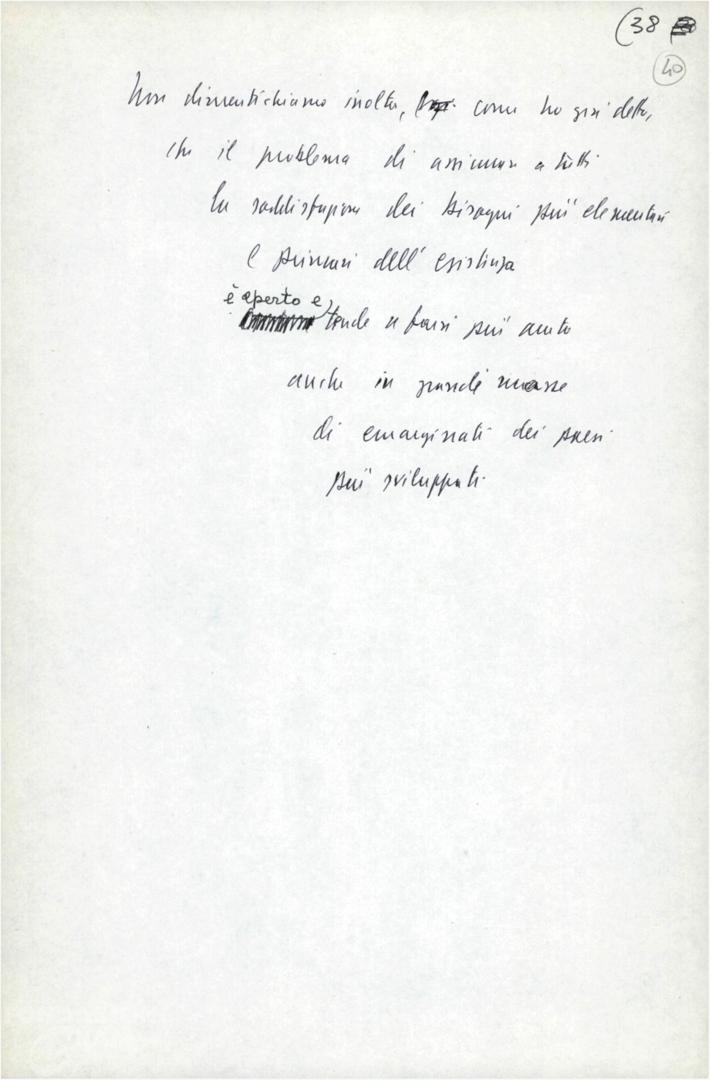 (38
40
Non dimentichiamo inoltre, come ho già detto,
che il problema di assicurare a tutti
la soddisfazione dei bisogni più elementari
e primari dell'esistenza
è aperto e
tende a farsi più acuto
anche in grandi masse
di emarginati dei paesi
più sviluppati.